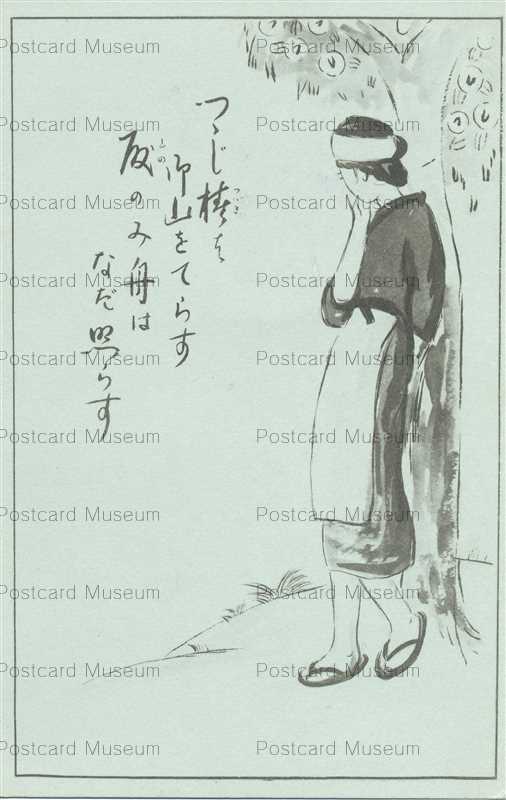 つゝじ椿は
御山をてらす
殿のみ舟は
なだ照らす
との
Postcard Museum Postcard Museum
Postcard Museum Postcard Museum
Postcard Museum Postcard Museum
Postcard Museum Postcard Museum
Postcard Museum Postcard Museum
Postcard Museum Postcard Museum
Postcard Museum Postcard Museum
Postcard Museum Postcard Museum
Postcard Museum Postcard Museum
Postcard Museum Postcard Museum